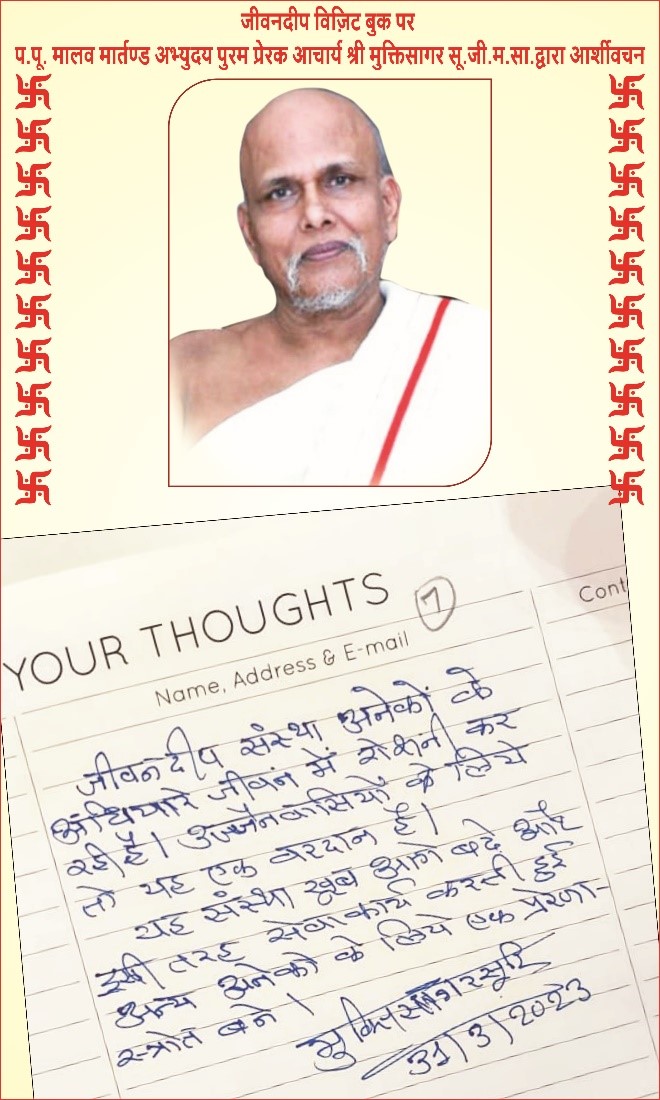 जीवनदीप विज़िट बुक पर
प.पू. मालव मार्तण्ड अभ्युदय पुरम प्रेरक आचार्य श्री मुक्तिसागर सू.जी.म.सा.द्वारा आर्शीवचन
YOUR THOUGHTS
1
Cont
Name, Address & E-mail
जीवनदीप संस्था अनेकों के
अंधियारे जीवन में रोशनी कर
रही है। उज्जैनवासियों के लिये
तो यह एक वरदान है।
यह संस्था खूब आगे बढे और
इसी तरह सेवाकार्य करती हुई
अन्य अनेकों के लिये एक प्रेरणा-
स्त्रोत बने।
मुक्तिसागरसूरि
31/3/2023